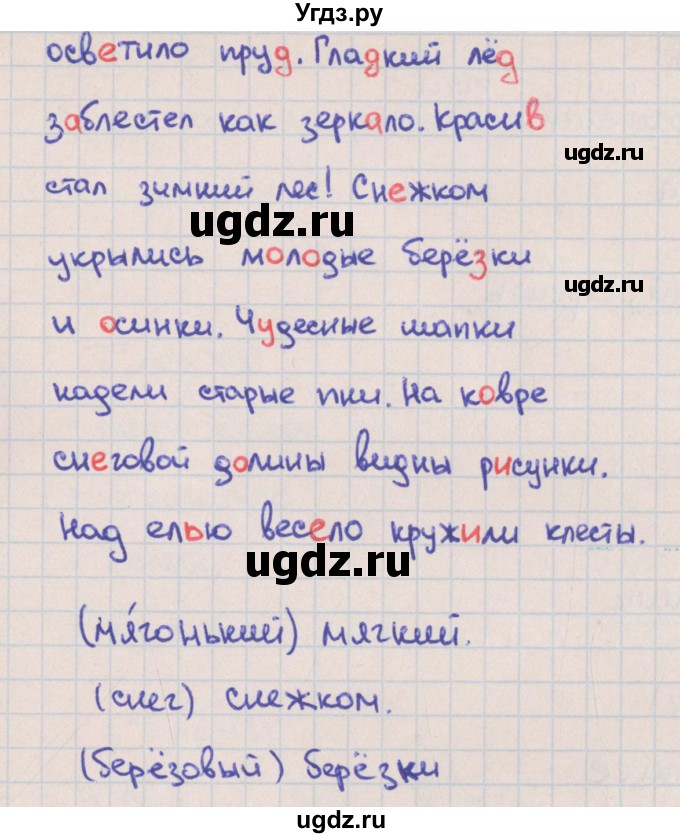 Угдз.ру
осветило пруд. Гладкий лёд
заблестел как зеркало. Красив
ugdz.ru
стал зимний лес! Снежком
ugdz.ru
укрылись молодые берёзки
ugdz.ru
и осинки. Чудесные шапки
надели старые пни. На ковре
снеговой долины видны рисунки.
Над елью весело кружили клесты.
ugdz.ru
(мя́гонький) мягкий.
(снег) снежком.
(берёзовый) берёзки
ugdz.ru